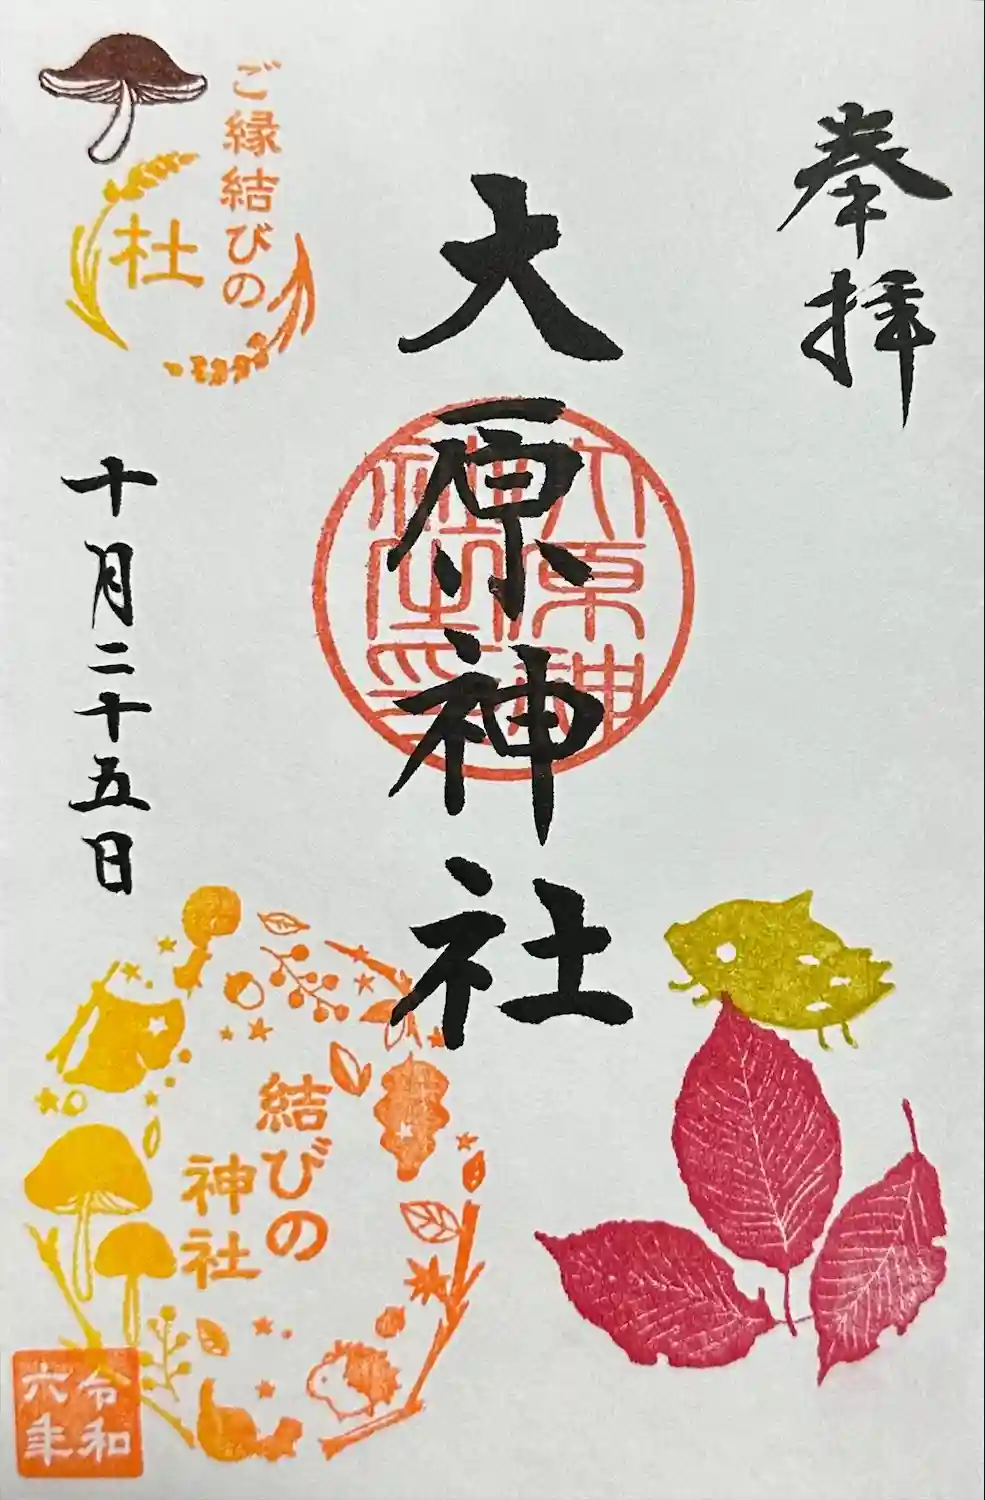 奉拝
大原神社
大原神
社之印
ご縁結びの
杜
十月二十五日
結びの
神社
令和
六年